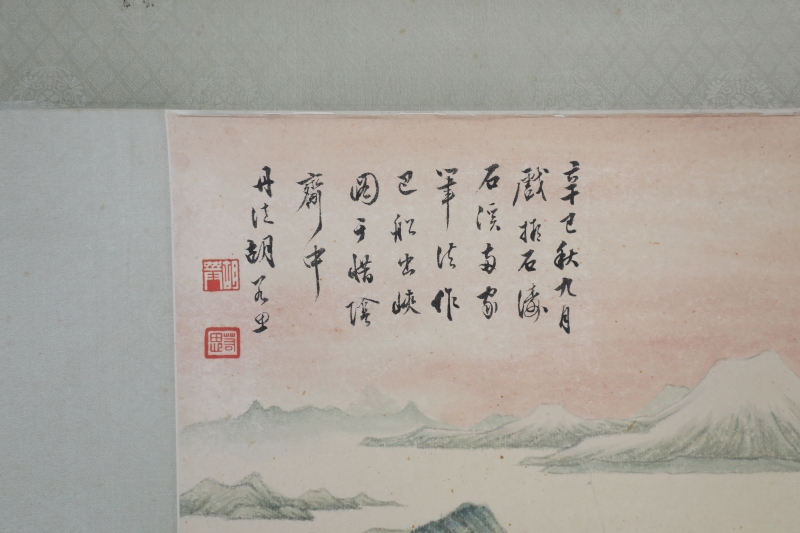 辛巳秋九月
戲拟石濤
石溪両家
筆法作
巴船出峽
圖于惜陰
齋中
丹徒胡若思